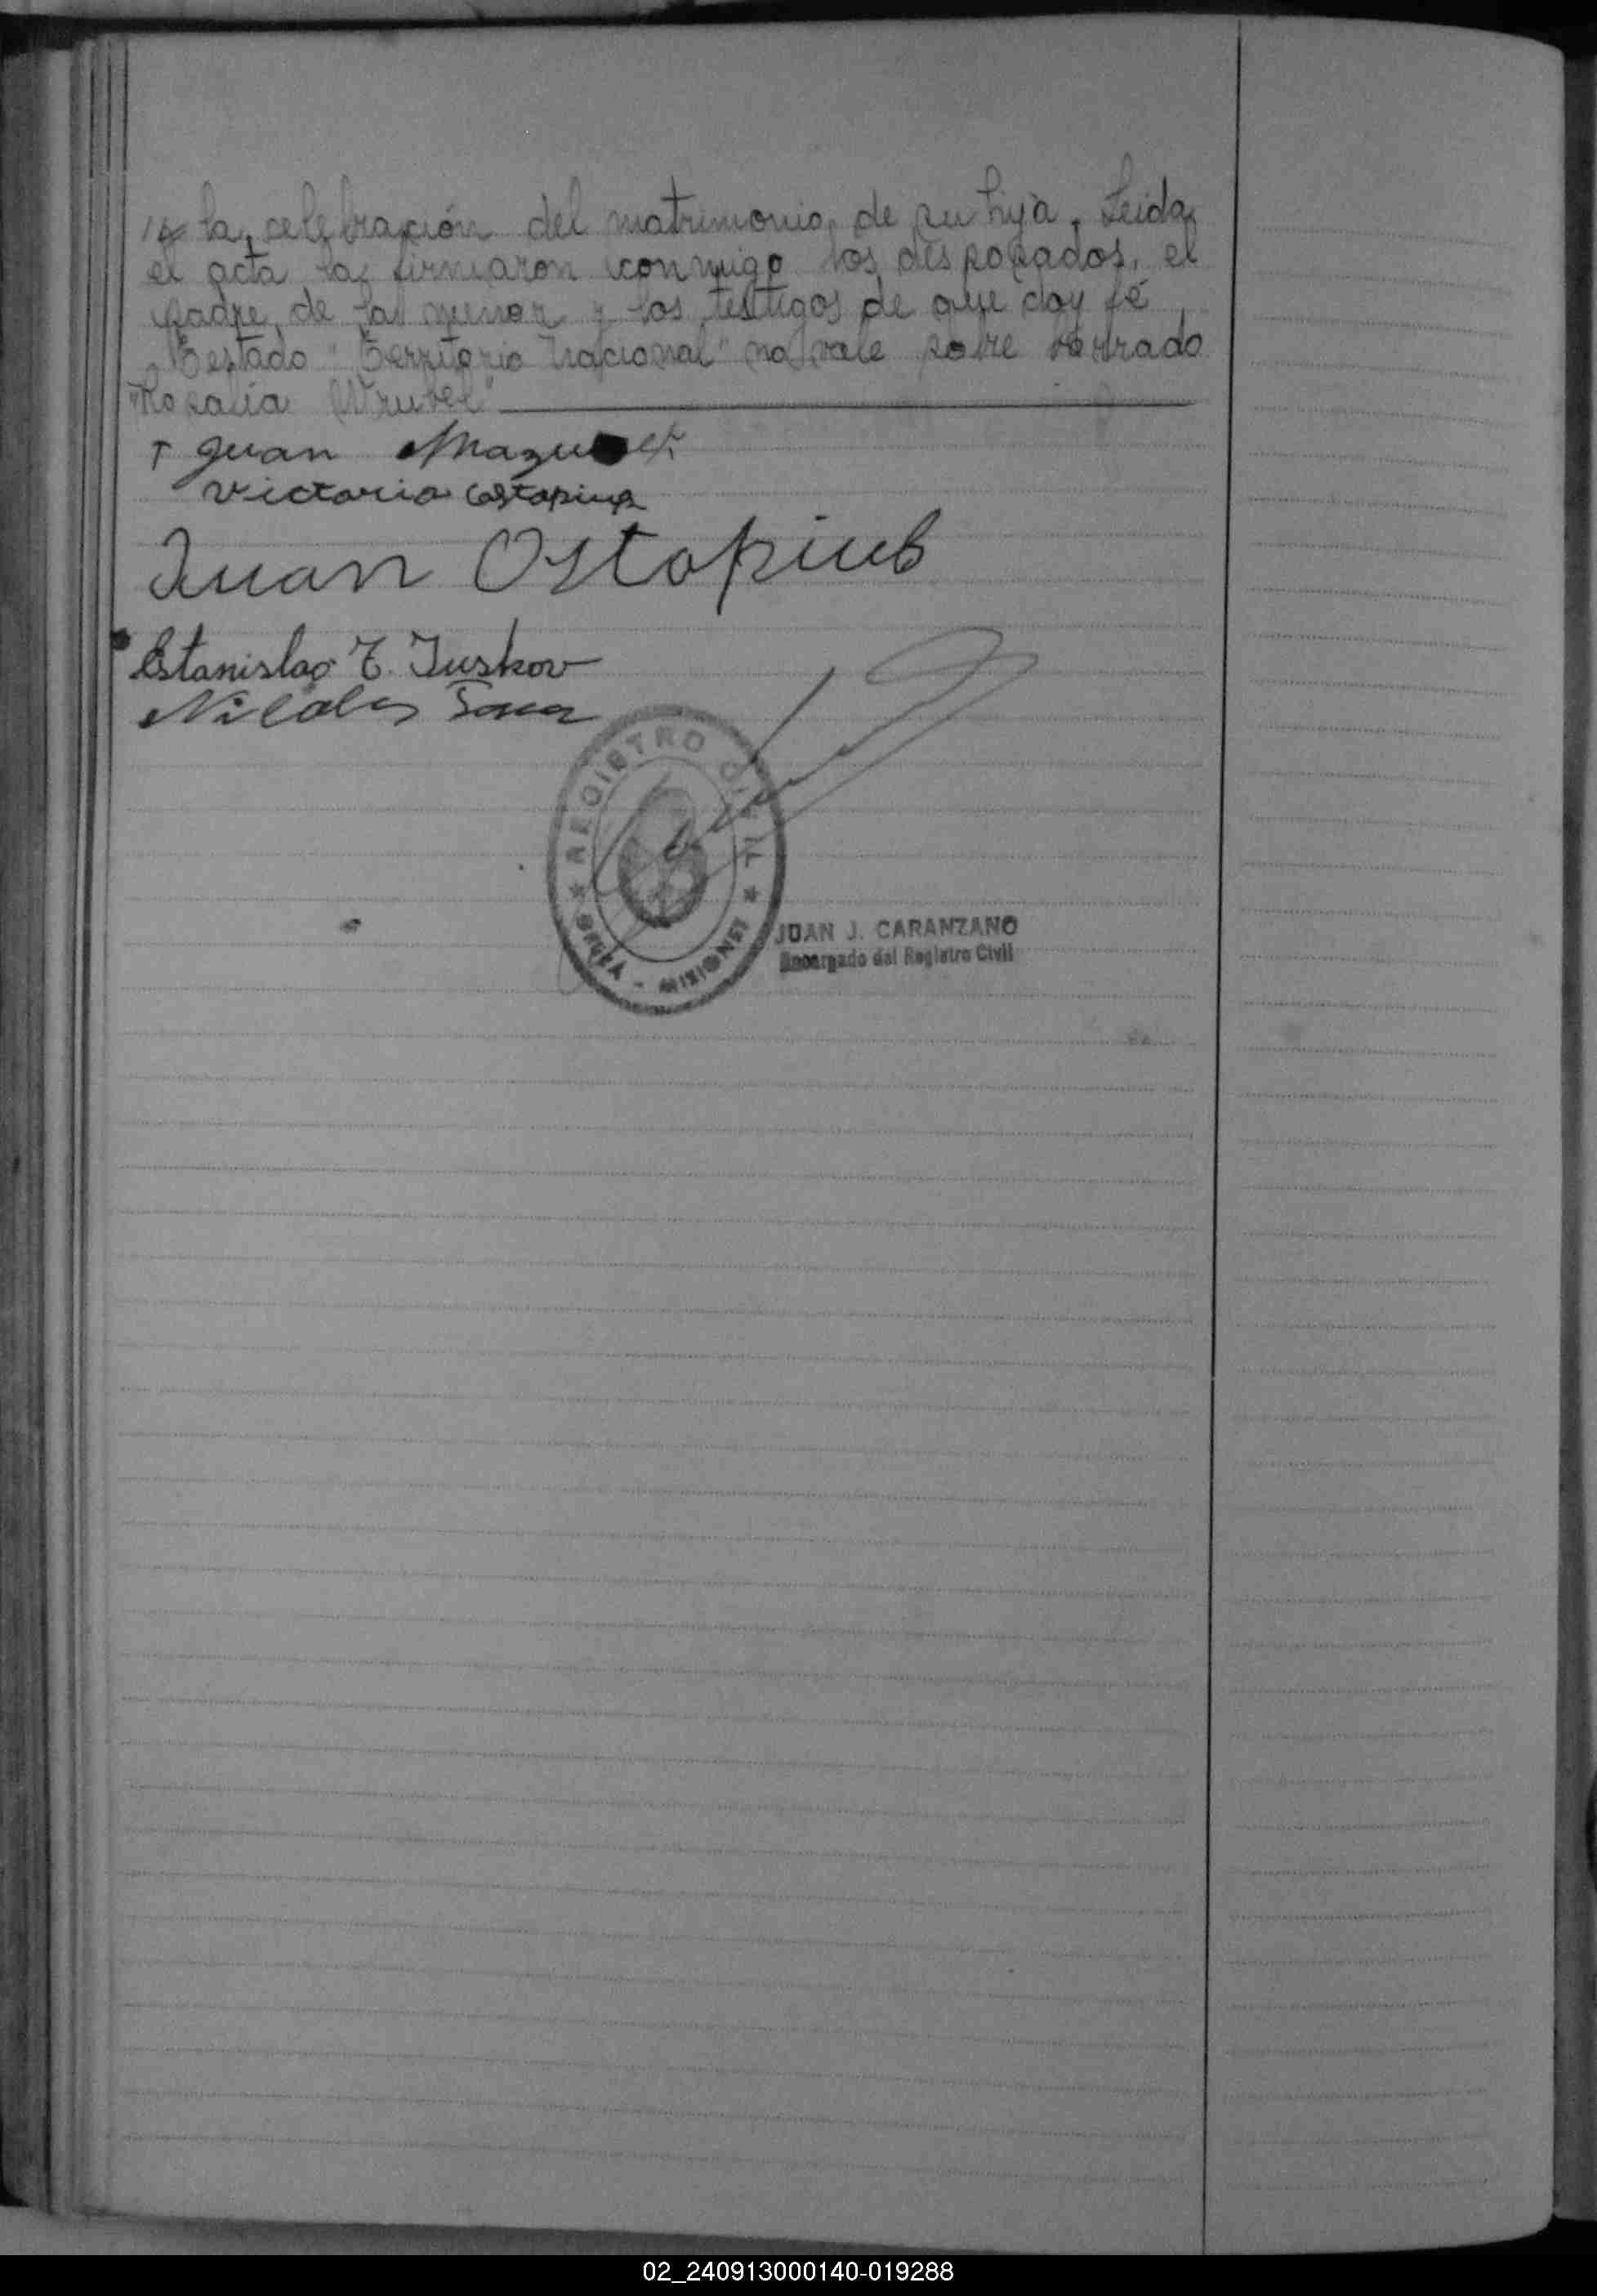 la celebración del matrimonio de su hija. Leida
el acta la firmaron conmigo los desposados, el
padre de la menor y los testigos de que doy fé
Testado "Territorio Nacional" no vale sobre borrado
"Rosalia Wrubel"
Juan
Victoria Ostapiuk
Juan Ostapiub
Estanislao T. Juskov
Nicolas
REGISTRO CIVIL
MISIONES
JUAN J. CARANZANO
Encargado del Registro Civil
02_240913000140-019288